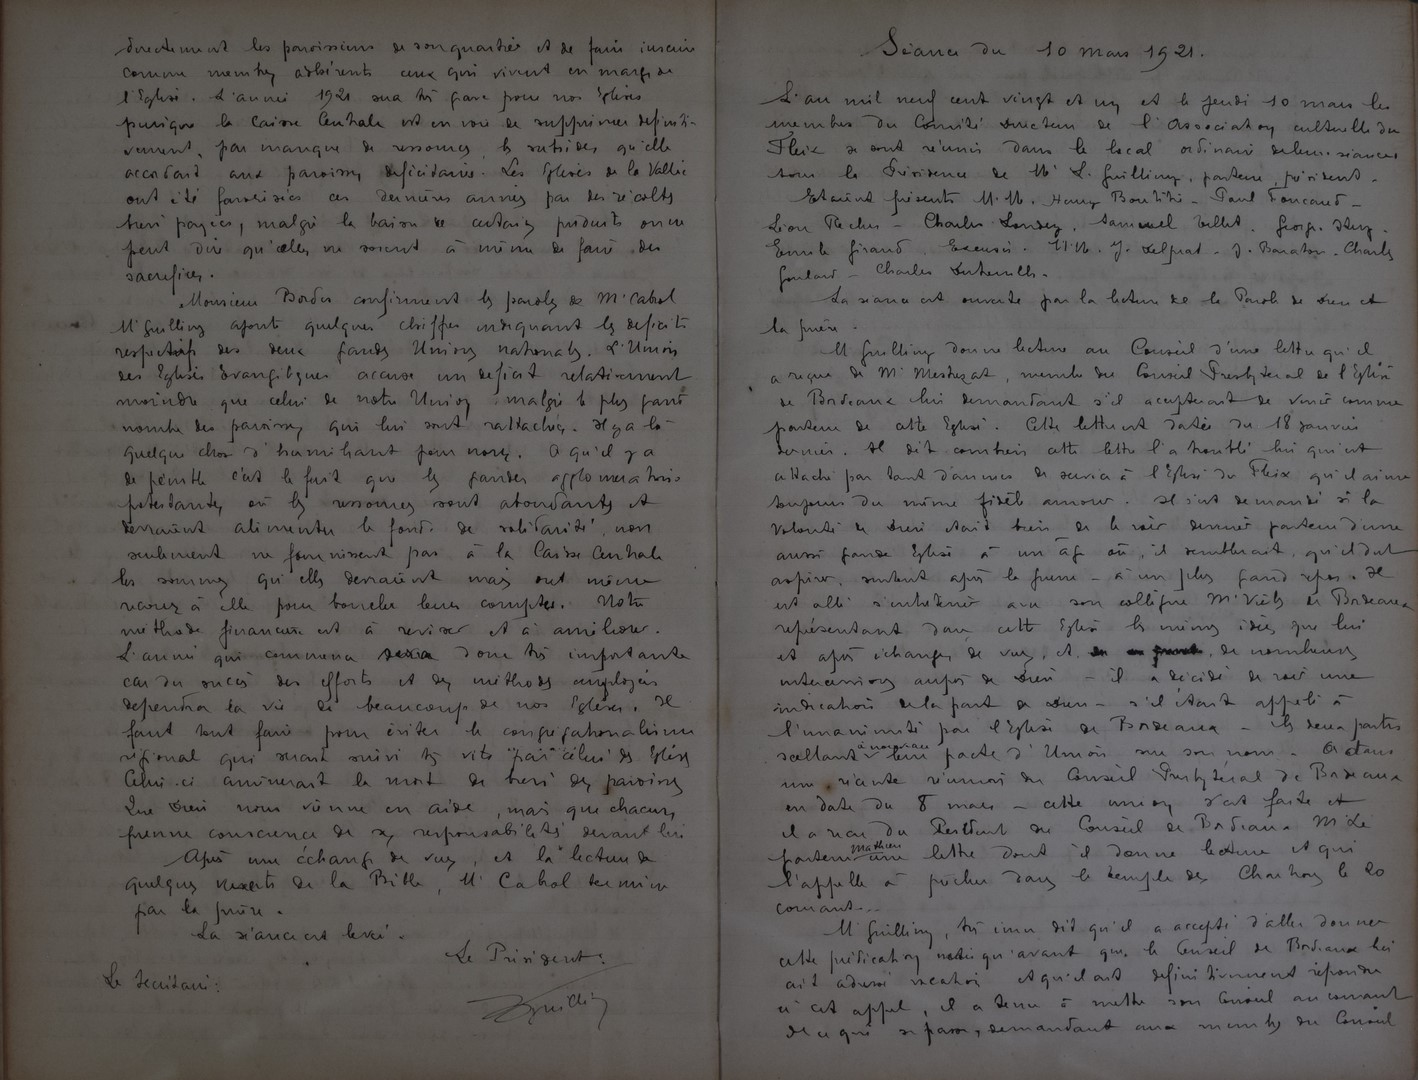 directement les paroissiens de son quartier et de faire inscrire
comme membres adhérents ceux qui vivent en marge de
l'Eglise. L'année 1921 sera très grave pour nos Eglises
puisque la Caisse Centrale est en voie de supprimer définiti-
vement, par manque de ressources, les subsides qu'elle
accordait aux paroisses déficitaires. Les Eglises de la Vallée
ont été favorisées ces dernières années par des récoltes
bien payées, malgré la baisse de certains produits on ne
peut dire qu'elles ne soient à même de faire des
sacrifices.
Monsieur Bordes confirment les paroles de Mr Cabrol
Mr Guilling ajoute quelques chiffres indiquant les déficits
respectifs des deux grandes Unions nationales. L'Union
des Eglises Evangéliques accuse un déficit relativement
moindre que celui de notre Union malgré le plus grand
nombre des paroisses qui lui sont rattachées. Il y a là
quelque chose d'humiliant pour nous. Ce qu'il y a
de pénible c'est le fait que les grandes agglomérations
protestantes où les ressources sont abondantes et
devraient alimenter le fonds de solidarité, non
seulement ne fournissent pas à la Caisse Centrale
les sommes qu'elles devraient mais ont même
recours à elle pour boucler leurs comptes. Notre
méthode financière est à reviser et à améliorer.
L'année qui commence sera donc très importante
car du succès des efforts et des méthodes employées
dépendra la vie de beaucoup de nos Eglises. Il
faut tout faire pour éviter le congrégationalisme
régional qui serait suivi très vite par celui des Eglises
Celui-ci amènerait la mort de bien des paroisses
Que Dieu nous vienne en aide, mais que chacun
prenne conscience de ses responsabilités devant lui
Après une échange de vues, et la lecture de
quelques versets de la Bible, Mr Cabrol termine
par la prière.
La séance est levée.
Le Président.
Le Secrétaire:
Guilling
Séance du 10 mars 1921.
L'an mil neuf cent vingt et un et le jeudi 10 mars les
membres du Comité Directeur de l'Association cultuelle du
Fleix se sont réunis dans le local ordinaire de leurs séances
sous la Présidence de Mr L. Guilling, pasteur, président.
Etaient présents M.M. Henry Boutitie - Paul Foucaud -
Léon Rocher - Charles Dousey, Samuel Tillet. Georges
Emile Giraud. Excusés. M.M. J. Delprat. J. Baraton. Charles
Goulard - Charles
La séance est ouverte par la lecture de la Parole de Dieu et
la prière.
M Guilling donne lecture au Conseil d'une lettre qu'il
a reçue de Mr Mestrezat, membre du Conseil Presbytéral de l'Eglise
de Bordeaux lui demandant s'il accepterait de venir comme
pasteur de cette Eglise. Cette lettre est datée du 18 janvier
dernier. Il dit combien cette lettre l'a troublé lui qui est
attaché par tant d'années de service à l'Eglise du Fleix qu'il aime
toujours du même fidèle amour. Il s'est demandé si la
volonté de Dieu était bien de le voir devenir pasteur d'une
aussi grande Eglise à un âge où, il semblerait, qu'il dut
aspirer, surtout après la guerre - à un plus grand repos. Il
est allé s'entretenir avec son collègue Mr Viets de Bordeaux
représentant dans cette Eglise les mêmes idées que lui
et après échanges de vues, et de nombreuses
intercessions auprès de Dieu - il a décidé de voir une
indication de la part de Dieu - s'il était appelé à
l'unanimité par l'Eglise de Bordeaux - les deux partis
scellant à nouveau leur pacte d'Union sur son nom. Or dans
une récente réunion du Conseil Presbytéral de Bordeaux
en date du 8 mars - cette union s'est faite et
il a reçu du Président du Conseil de Bordeaux Mr Le
pasteur Mathieu une lettre dont il donne lecture et qui
l'appelle à prêcher dans le temple des Chartrons le 20
courant...
M Guilling, très ému dit qu'il a accepté d'aller donner
cette prédication mais qu'avant que le Conseil de Bordeaux lui
ait adressé vocation et qu'il ait définitivement répondu
à cet appel, il a tenu à mettre son Conseil au courant
de ce qui se passe, demandant aux membres du Conseil